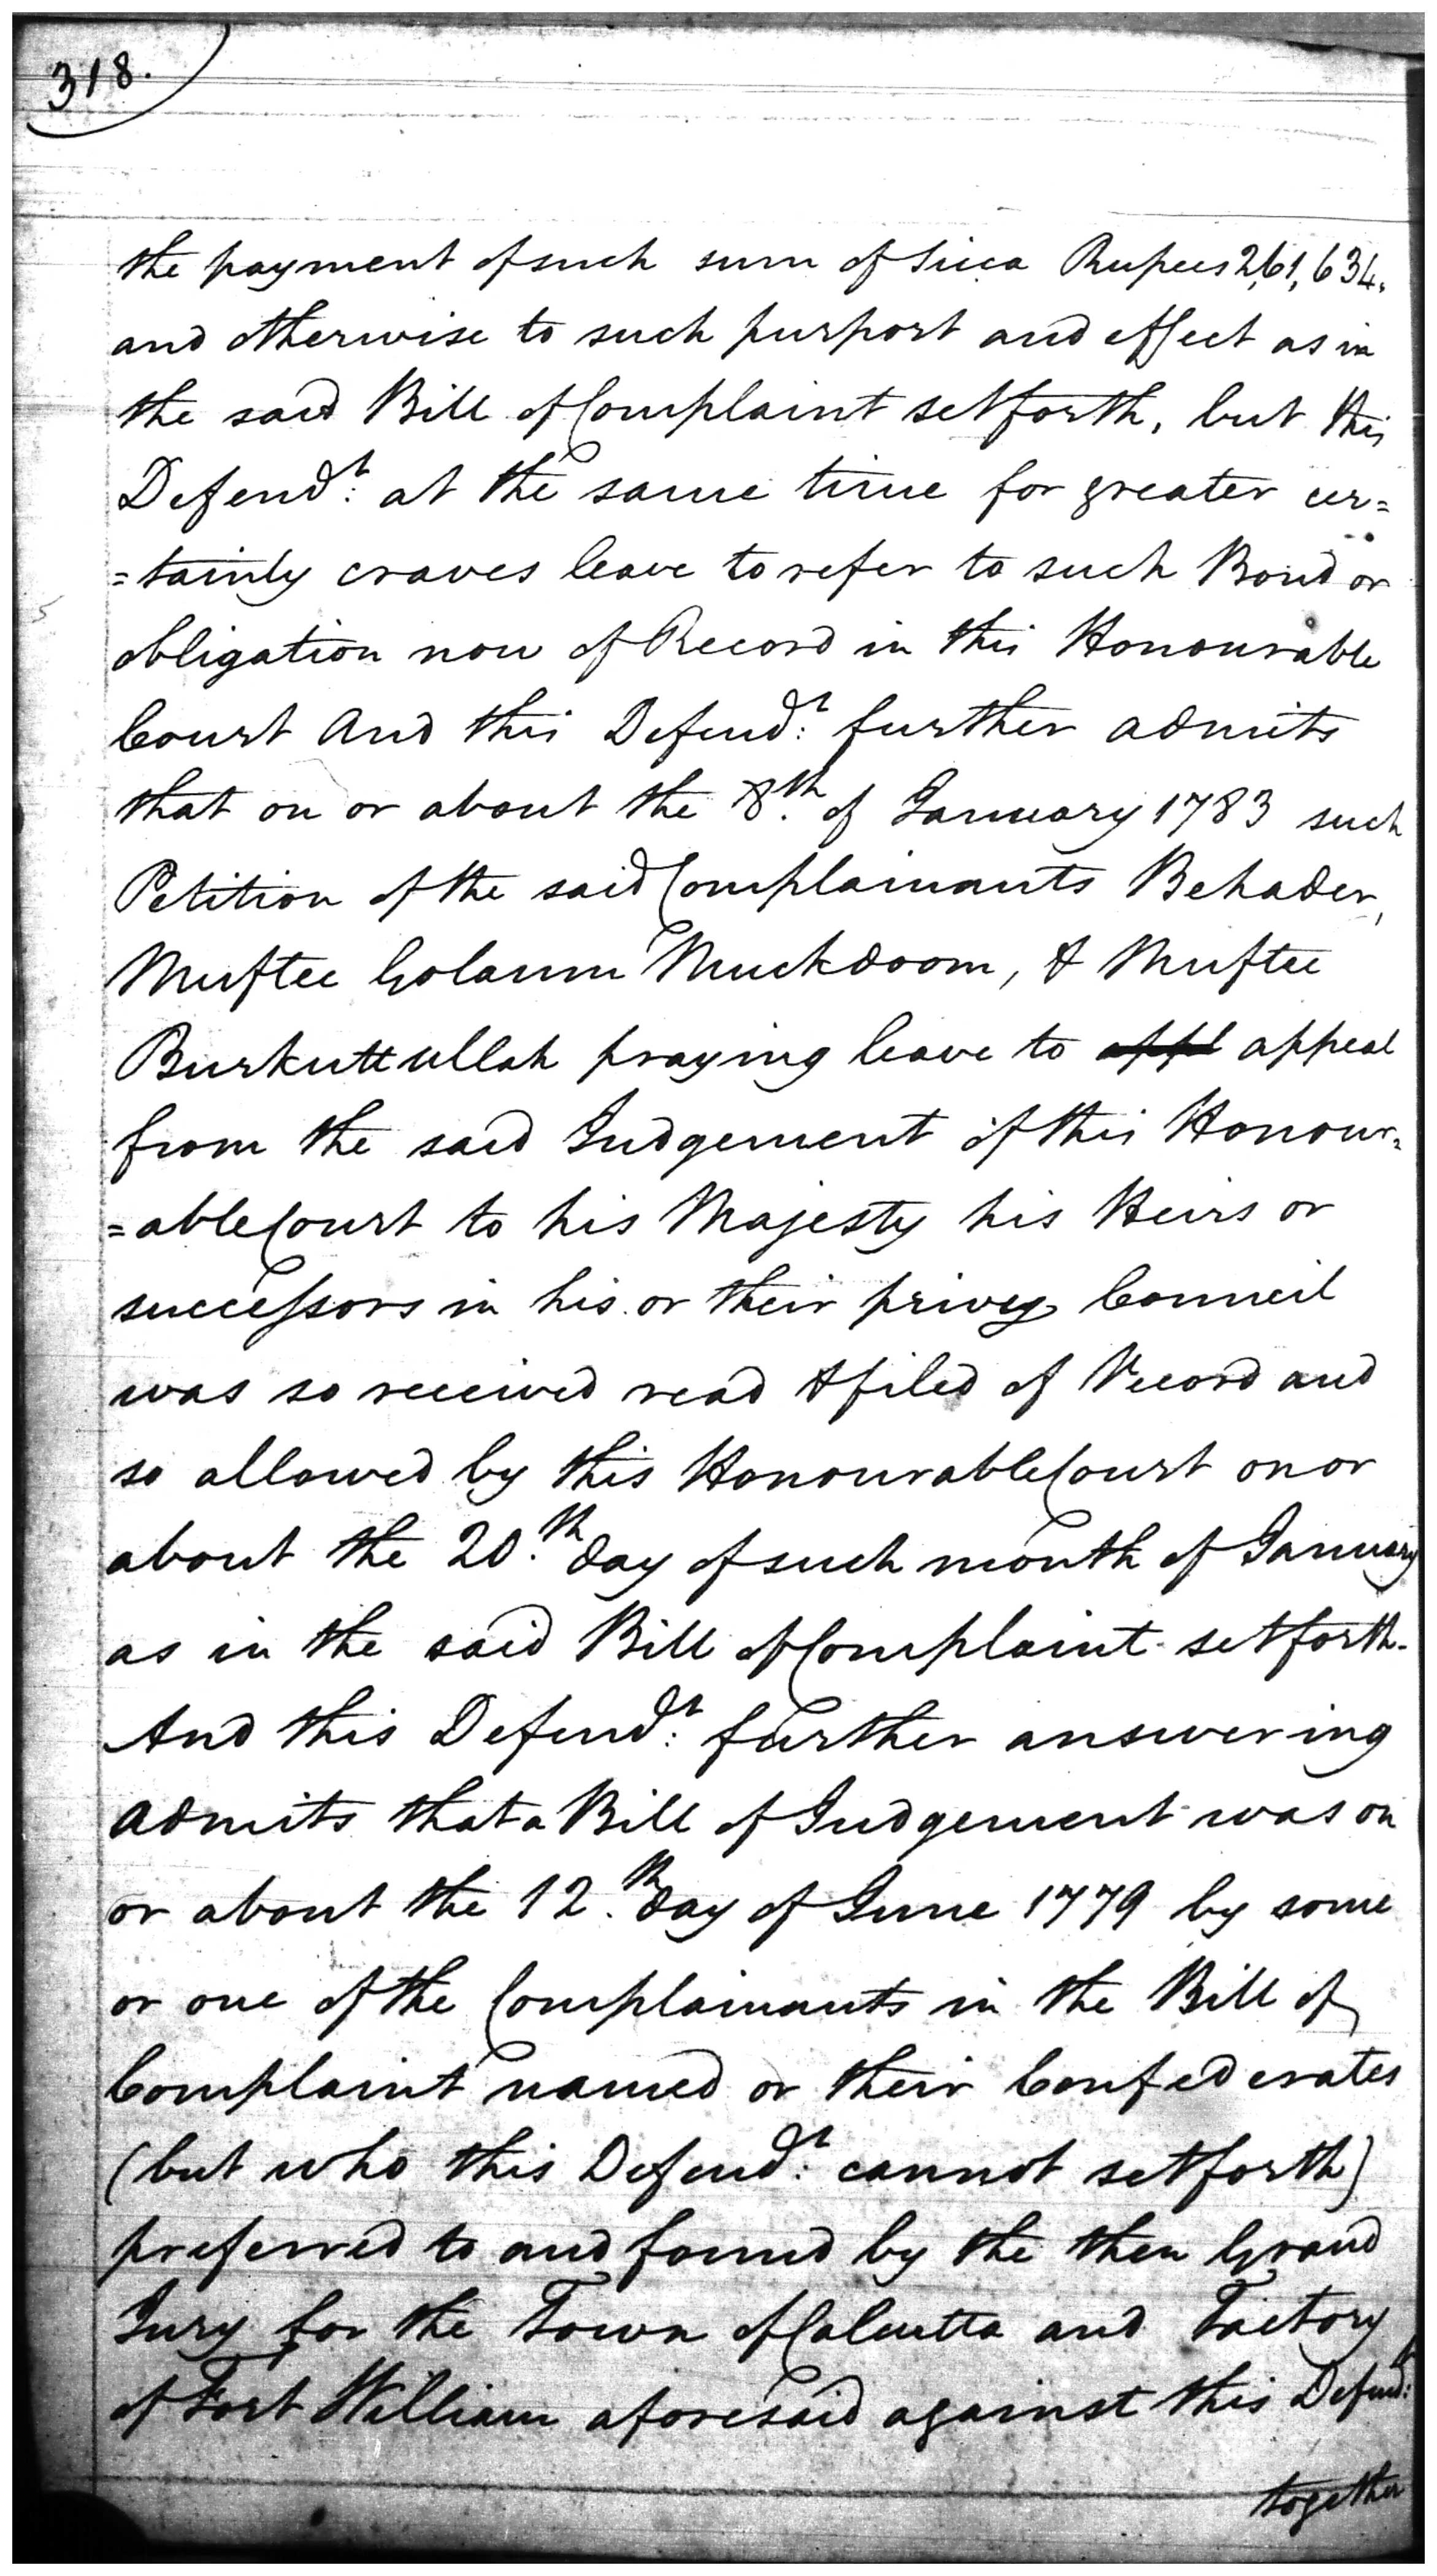 318.
the payment of such sum of Sicca Rupees 2,61,634.
and otherwise to such purport and effect as in
the said Bill of Complaint set forth, but this
Defend.t at the same time for greater cer=
=tainly craves leave to refer to such Bond or
obligation now of Record in this Honourable
Court And this Defend.t further admits
that on or about the 8.th of January 1783 such
Petition of the said Complainants Behader,
Muftee Golaum Muckdoom, & Muftee
Burkuttullah praying leave to appl appeal
from the said Judgement of this Honour=
=able Court to his Majesty his Heirs or
successors in his or their privy Council
was so received read & filed of Record and
so allowed by this Honourable Court on or
about the 20.th day of such month of January
as in the said Bill of Complaint set forth.
And this Defend.t further answering
admits that a Bill of Judgement was on
or about the 12.th day of June 1779 by some
or one of the Complainants in the Bill of
Complaint named or their Confederates
(but who this Defend.t cannot set forth)
preferred to and found by the then Grand
Jury for the Town of Calcutta and Factory
of Fort William aforesaid against this Defend.t
together